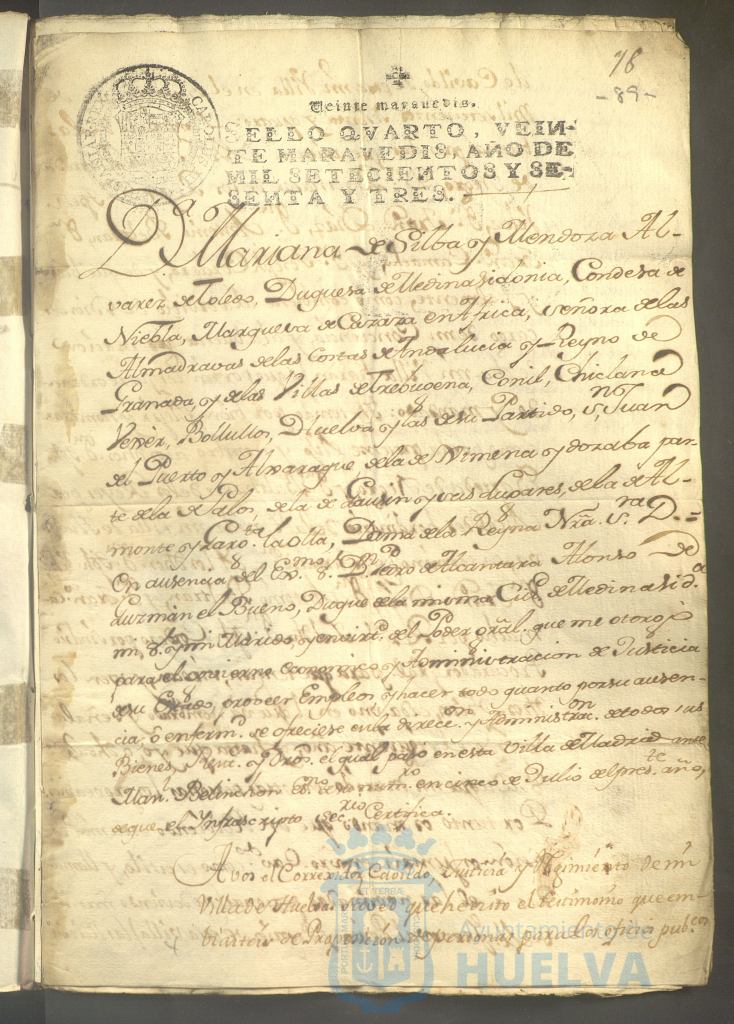 78
-89-
Veinte maravedis.
SELLO QVARTO, VEIN-
TE MARAVEDIS, AÑO DE
MIL SETECIENTOS Y SE-
SENTA Y TRES.
D.ª Mariana de Silba y Mendoza Al-
varez de Toledo, Duquesa de Medinasidonia, Condesa de
Niebla, Marquesa de Cazaza en Africa, Señora de las
Almadravas de las Costas de Andalucia y Reyno de
Granada, y de las Villas de Trebugena, Conil, Chiclana
Vexèr, Bollullos, Huelva y las de su Partido, S.n Juan
del Puerto y Alxaraque, de la de Ximena y dozaba par-
te de la de Palos, de la de Gausin y sus Lugares, de la de Al-
monte y la olla, Dama de la Reyna Nra. S.ra D.=
En ausencia del Ex.mo S.r D.n Pedro de Alcantara Alonso de
Guzman el Bueno, Duque de la misma Ciu.d de Medinasid.a
mi S.r y mi Marido, y en virt.d del Poder gral. que me otorgò
para el govierno economico y Administracion de Justicia
de su Estado, proveer Empleos y hacer todo quanto por su ausen-
cia, ô enferm.d se ofreciese en la direcc.on y Administra.on de todos sus
Bienes, y el qual pasò en esta Villa de Madrid ante
Man.l Belinchon es.no de su num.ro en cinco de Julio del pres.te año,
de que el Infrascripto Sec.rio Certifica.
A vos el Corregidor, Cavildo, Justicia y Regimiento de mi
Villa de Huelva. Saved que he visto el testimonio que em-
biasteis de Proposicion de personas para los oficios pub.cos
Ayuntamiento de
HUELVA